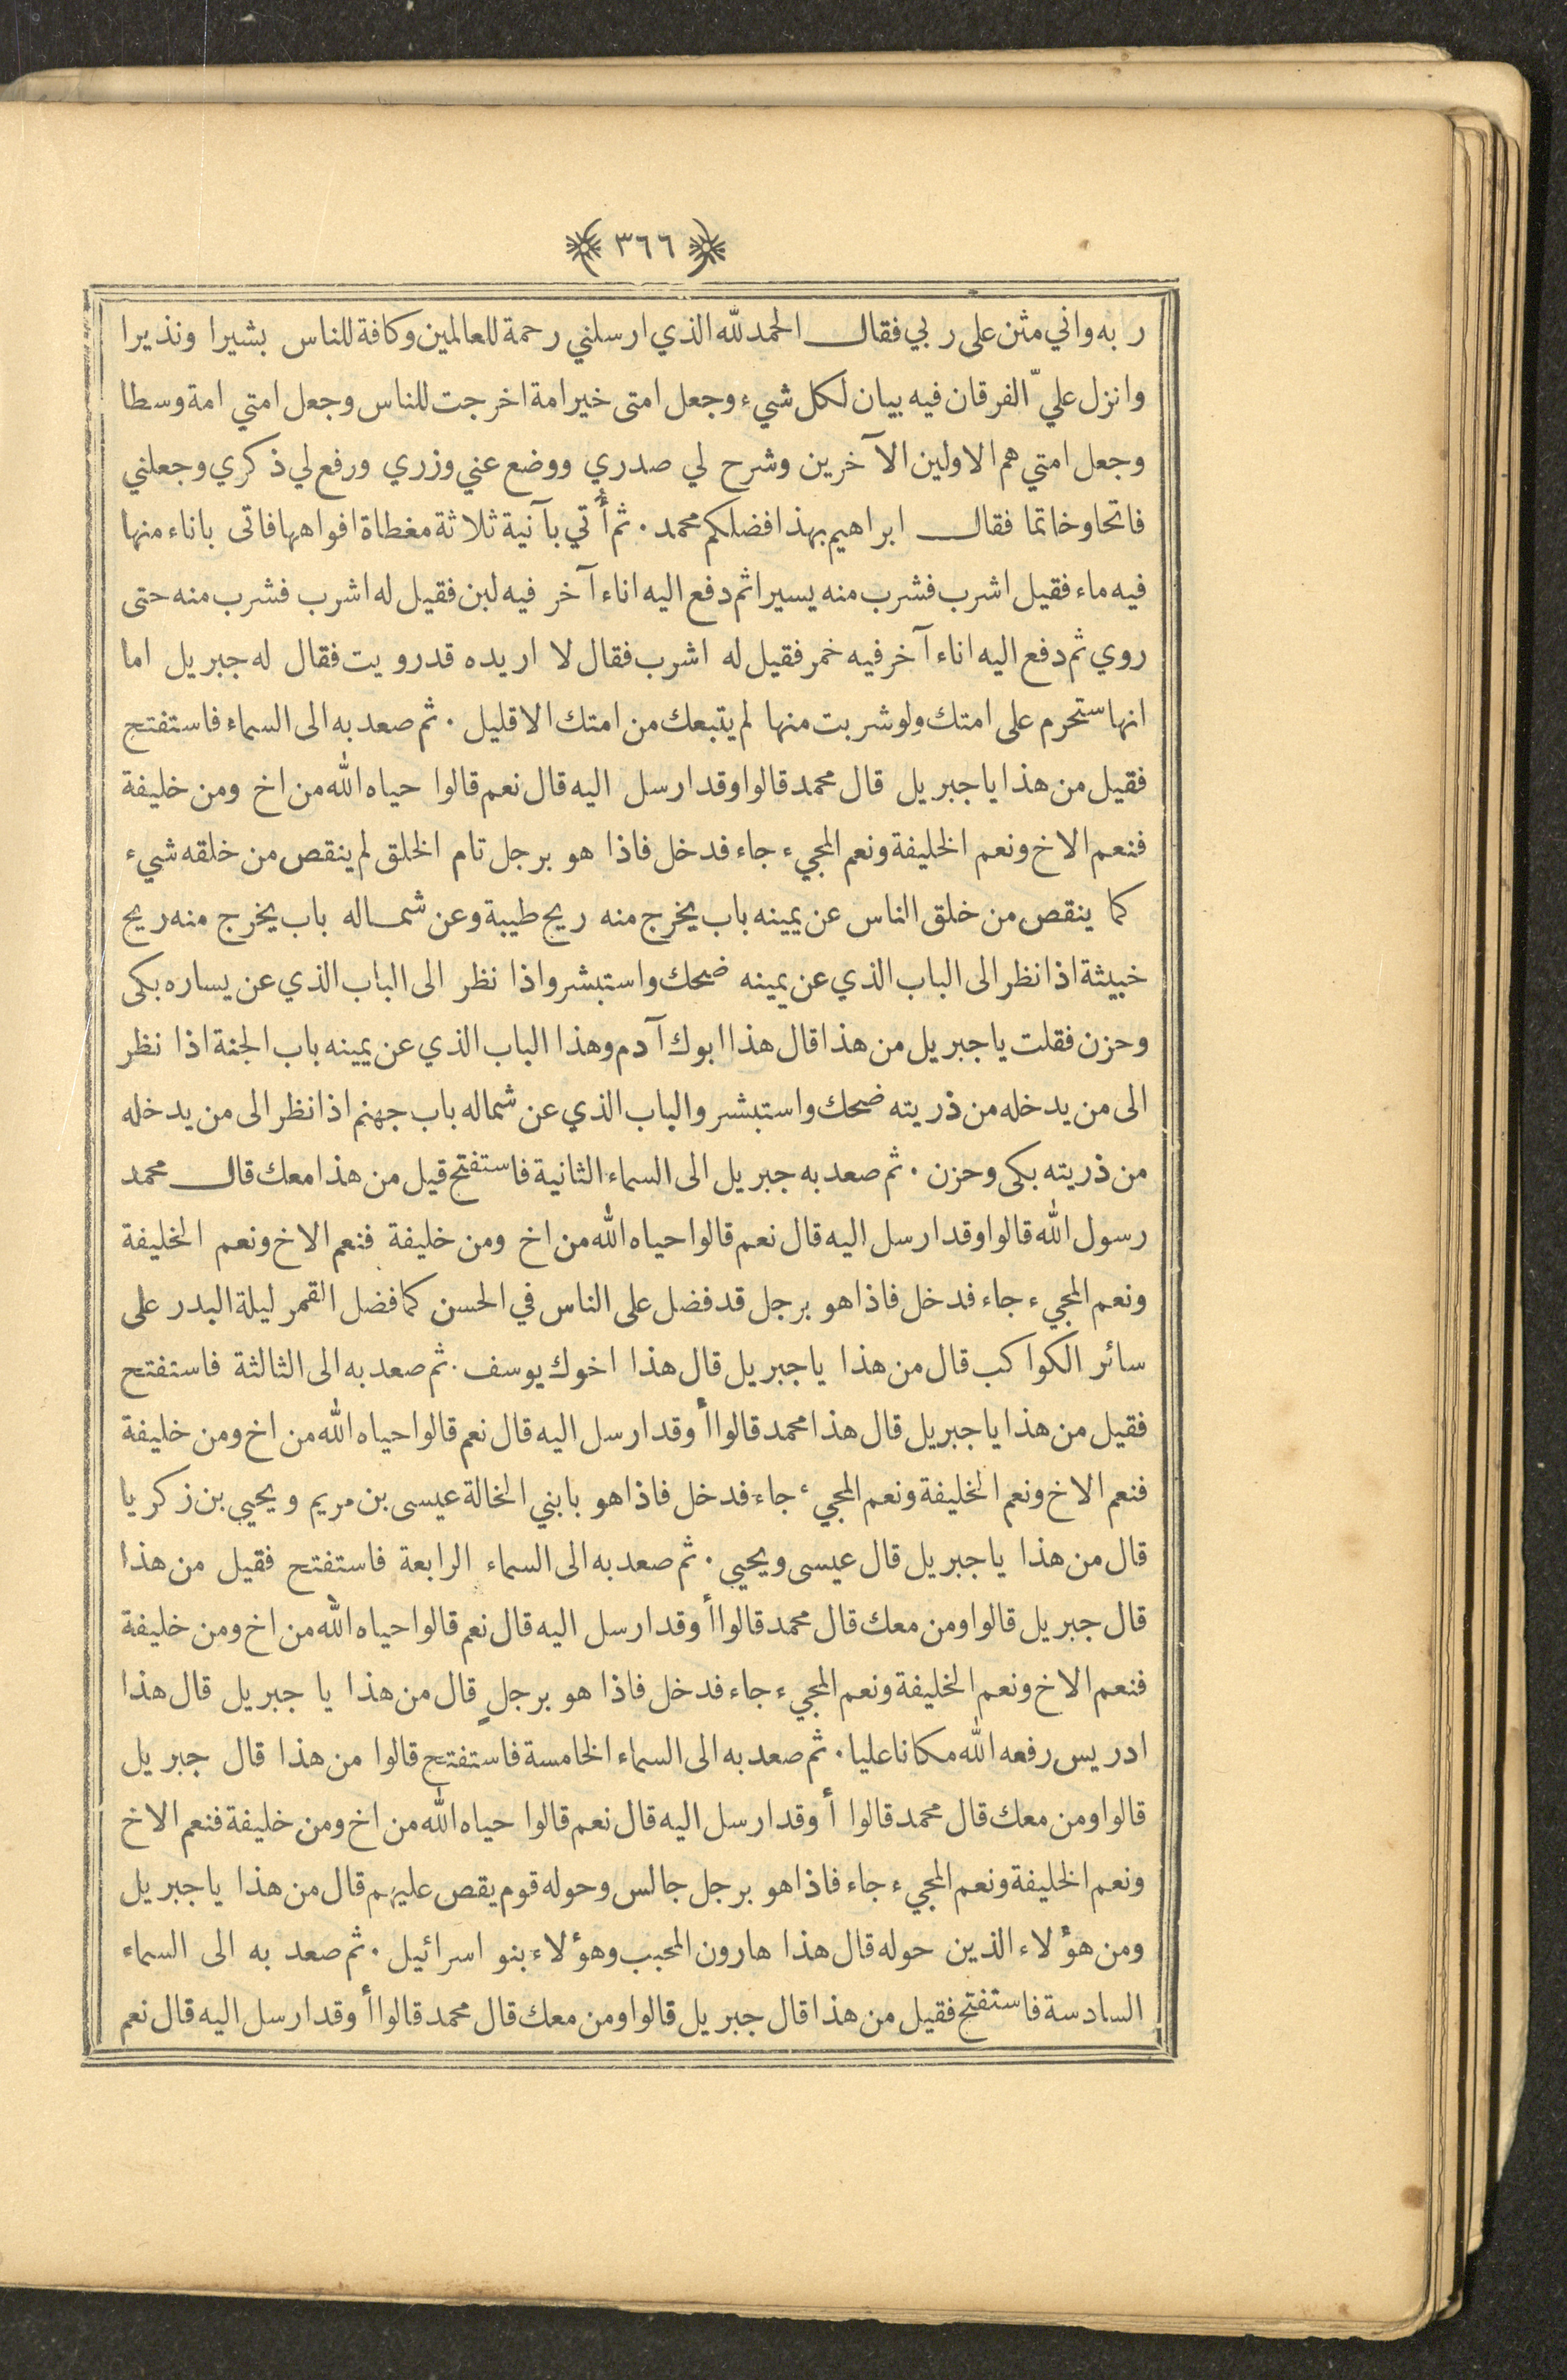 ﴿ ٣٦٦ ﴾
ربه واني مثن على ربي فقال الحمد لله الذي ارسلني رحمة للعالمين وكافة للناس بشيرا ونذيرا
وانزل عليّ الفرقان فيه بيان لكل شيء وجعل امتى خير امة اخرجت للناس وجعل امتي امة وسطا
وجعل امتي هم الاولين الآخرين وشرح لي صدري ووضع عني وزري ورفع لي ذكري وجعلني
فاتحا وخاتما فقال ابراهيم بهذا فضلكم محمد. ثم أُتي بآنية ثلاثة مغطاة افواهها فاتى باناء منها
فيه ماء فقيل اشرب فشرب منه يسيرا ثم دفع اليه اناء آخر فيه لبن فقيل له اشرب فشرب منه حتى
روي ثم دفع اليه اناء آخر فيه خمر فقيل له اشرب فقال لا اريده قد رويت فقال له جبريل اما
انها ستحرم على امتك ولو شربت منها لم يتبعك من امتك الا قليل. ثم صعد به الى السماء فاستفتح
فقيل من هذا يا جبريل قال محمد قالوا وقد ارسل اليه قال نعم قالوا حياه الله من اخ ومن خليفة
فنعم الاخ ونعم الخليفة ونعم المجيء جاء فدخل فاذا هو برجل تام الخلق لم ينقص من خلقه شيء
كما ينقص من خلق الناس عن يمينه باب يخرج منه ريح طيبة وعن شماله باب يخرج منه ريح
خبيثة اذا نظر الى الباب الذي عن يمينه ضحك واستبشر واذا نظر الى الباب الذي عن يساره بكى
وحزن فقلت يا جبريل من هذا قال هذا ابوك آدم وهذا الباب الذي عن يمينه باب الجنة اذا نظر
الى من يدخله من ذريته ضحك واستبشر والباب الذي عن شماله باب جهنم اذا نظر الى من يدخله
من ذريته بكى وحزن. ثم صعد به جبريل الى السماء الثانية فاستفتح قيل من هذا معك قال محمد
رسول الله قالوا وقد ارسل اليه قال نعم قالوا حياه الله من اخ ومن خليفة فنعم الاخ ونعم الخليفة
ونعم المجيء جاء فدخل فاذا هو برجل قد فضل على الناس في الحسن كما فضل القمر ليلة البدر على
سائر الكواكب قال من هذا يا جبريل قال هذا اخوك يوسف. ثم صعد به الى الثالثة فاستفتح
فقيل من هذا يا جبريل قال هذا محمد قالوا أوقد ارسل اليه قال نعم قالوا حياه الله من اخ ومن خليفة
فنعم الاخ ونعم الخليفة ونعم المجيء جاء فدخل فاذا هو بابني الخالة عيسى بن مريم ويحيي بن زكريا
قال من هذا يا جبريل قال عيسى ويحيي. ثم صعد به الى السماء الرابعة فاستفتح فقيل من هذا
قال جبريل قالوا ومن معك قال محمد قالوا أوقد ارسل اليه قال نعم قالوا حياه الله من اخ ومن خليفة
فنعم الاخ ونعم الخليفة ونعم المجيء جاء فدخل فاذا هو برجلٍ قال من هذا يا جبريل قال هذا
ادريس رفعه الله مكانا عليا. ثم صعد به الى السماء الخامسة فاستفتح قالوا من هذا قال جبريل
قالوا ومن معك قال محمد قالوا أوقد ارسل اليه قال نعم قالوا حياه الله من اخ ومن خليفة فنعم الاخ
ونعم الخليفة ونعم المجيء جاء فاذا هو برجل جالس وحوله قوم يقص عليهم قال من هذا يا جبريل
ومن هؤلاء الذين حوله قال هذا هارون المحبب وهؤلاء بنو اسرائيل. ثم صعد به الى السماء
السادسة فاستفتح فقيل من هذا قال جبريل قالوا ومن معك قال محمد قالوا أوقد ارسل اليه قال نعم